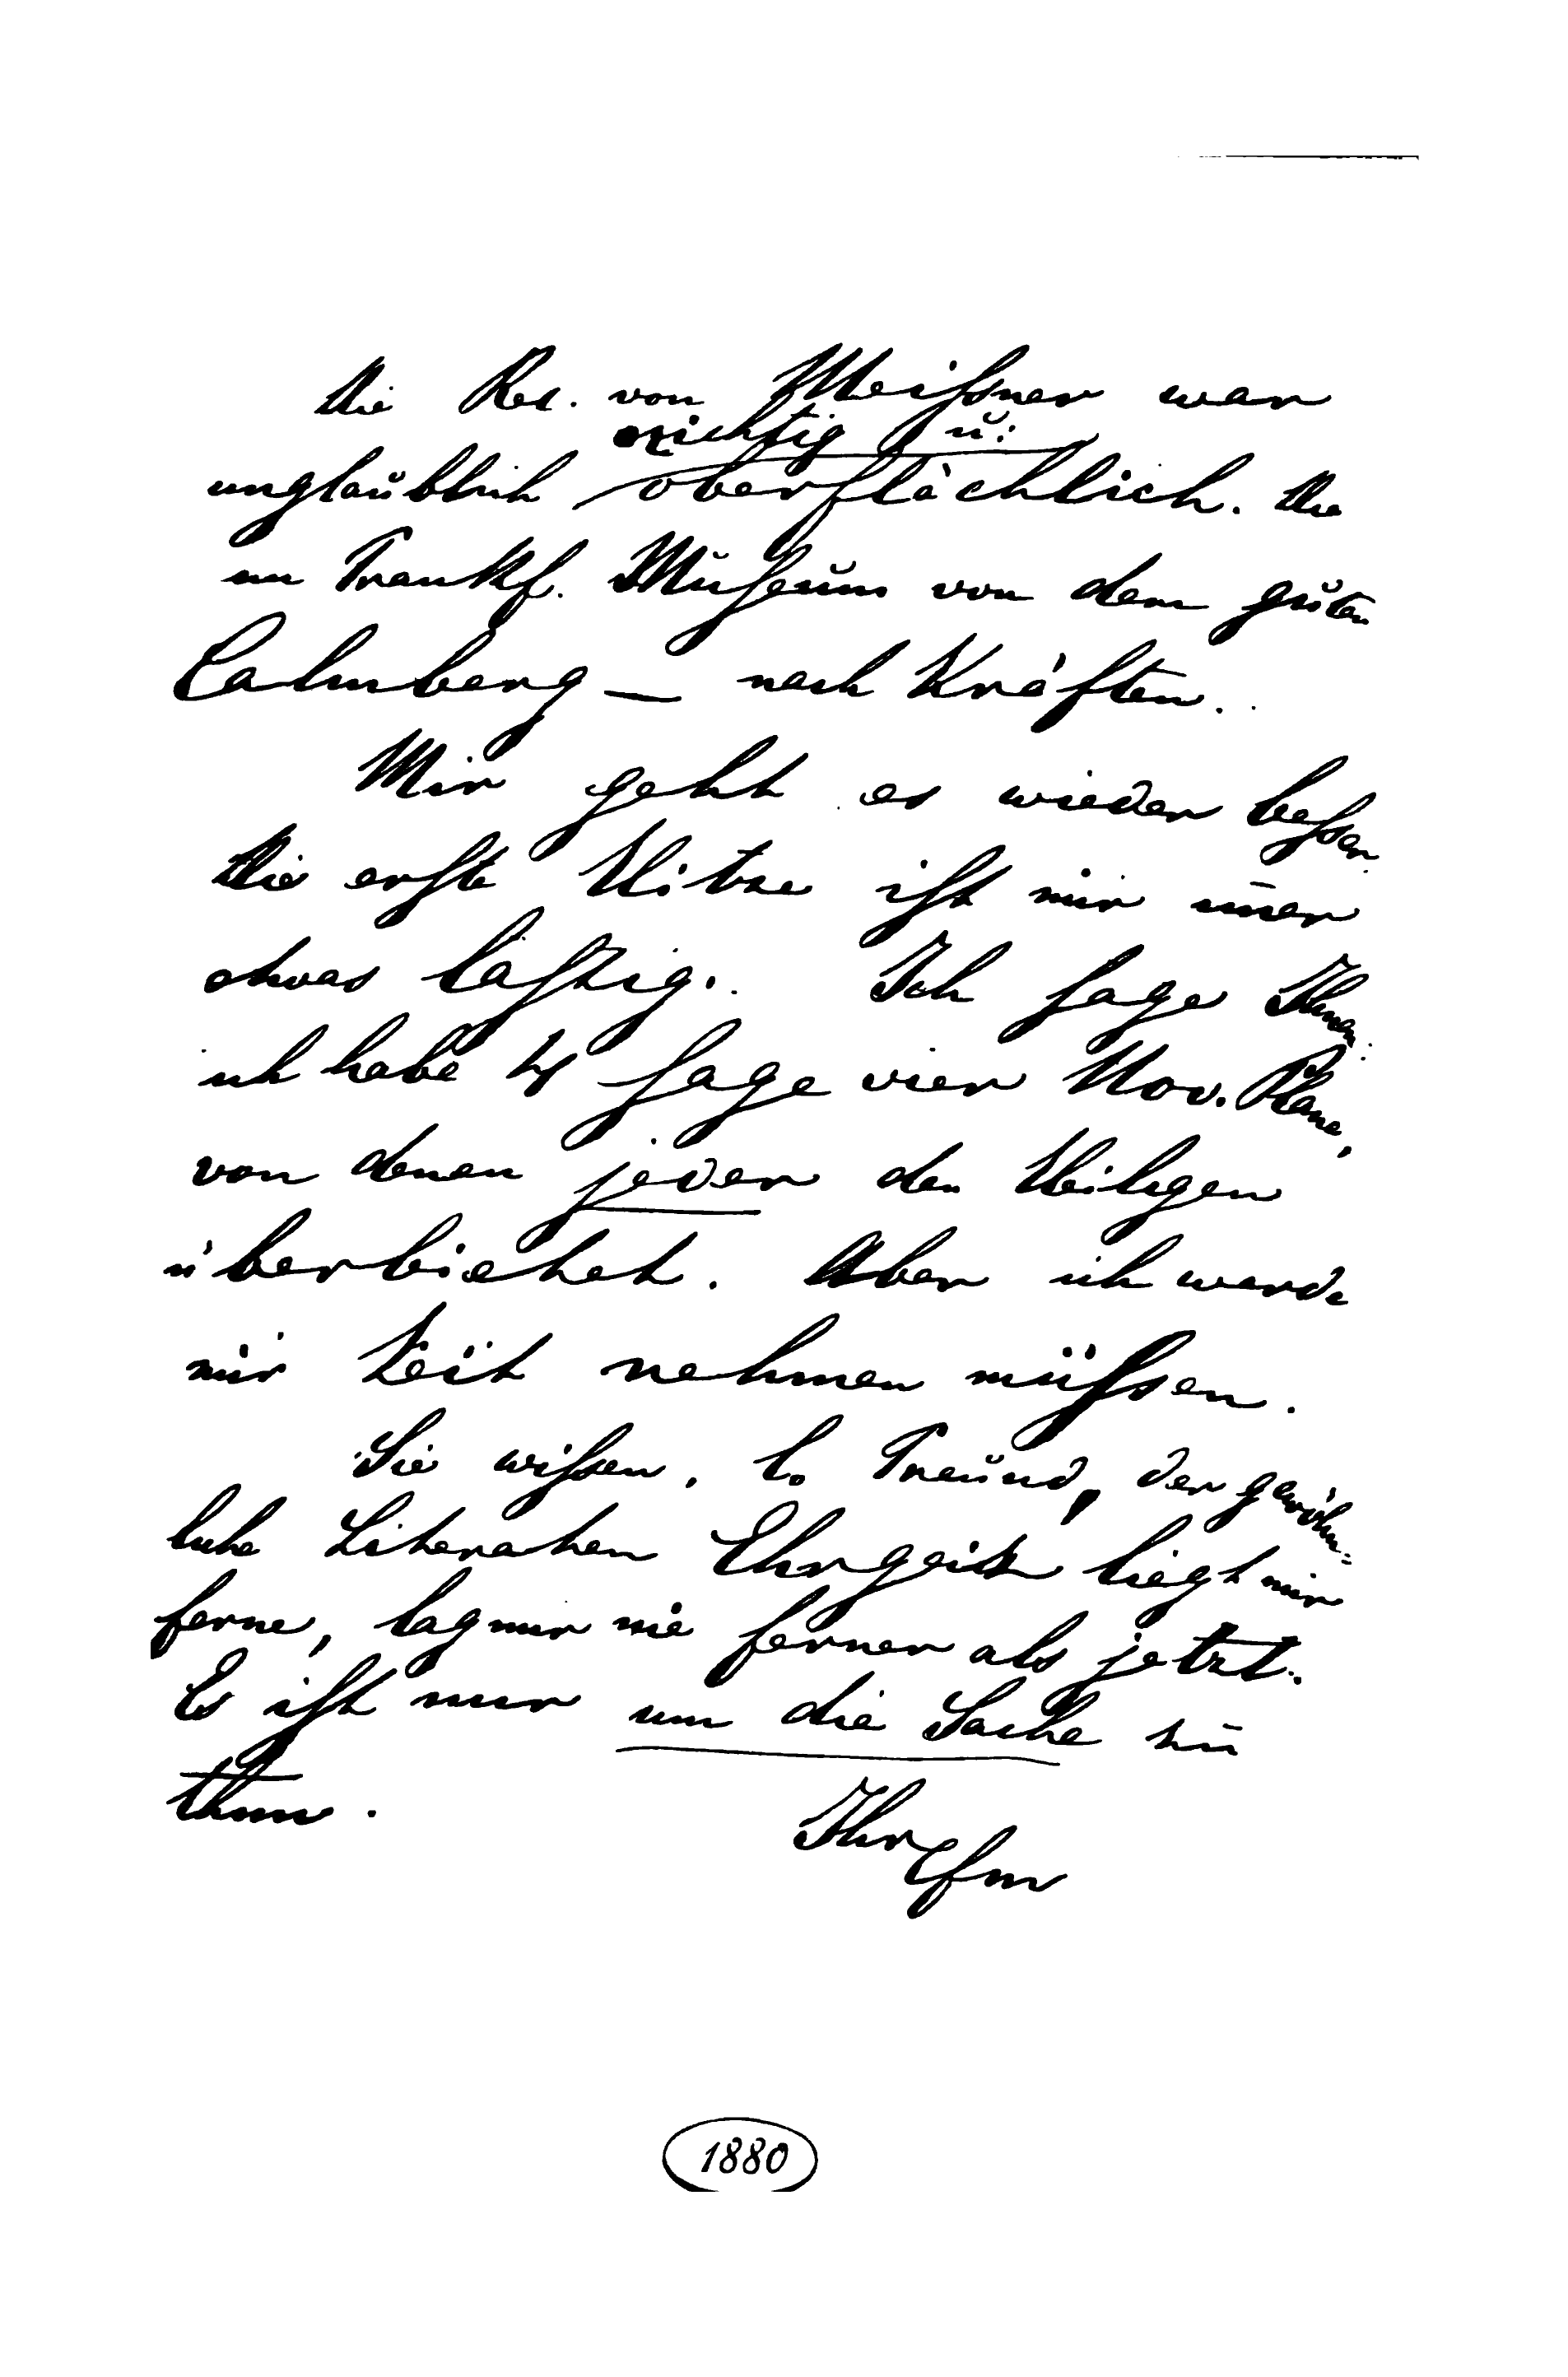 Die Rec. von Meißner war
nichtig u:
unglaublich oberflächlich. Die
im Frankf. Museum von dem guten
Calmberg — nach Kräften.
Mir geht es wieder besser.
Die erste Hitze ist mir im̅er
etwas lästig. Ich sage Ihnen:
ich habe 4 sage vier Nov. Pläne,
von denen jeder den Heiligen
überbietet. Aber ich werde
mir Zeit nehmen müssen.
Sie wissen, l. Freund, der gewöhn=
liche Literaten Ehrgeiz liegt mir
ferne, lag mir nie ferner als jetzt.
Es ist mir um die Sache zu
thun.
Ihr
cfm
1880